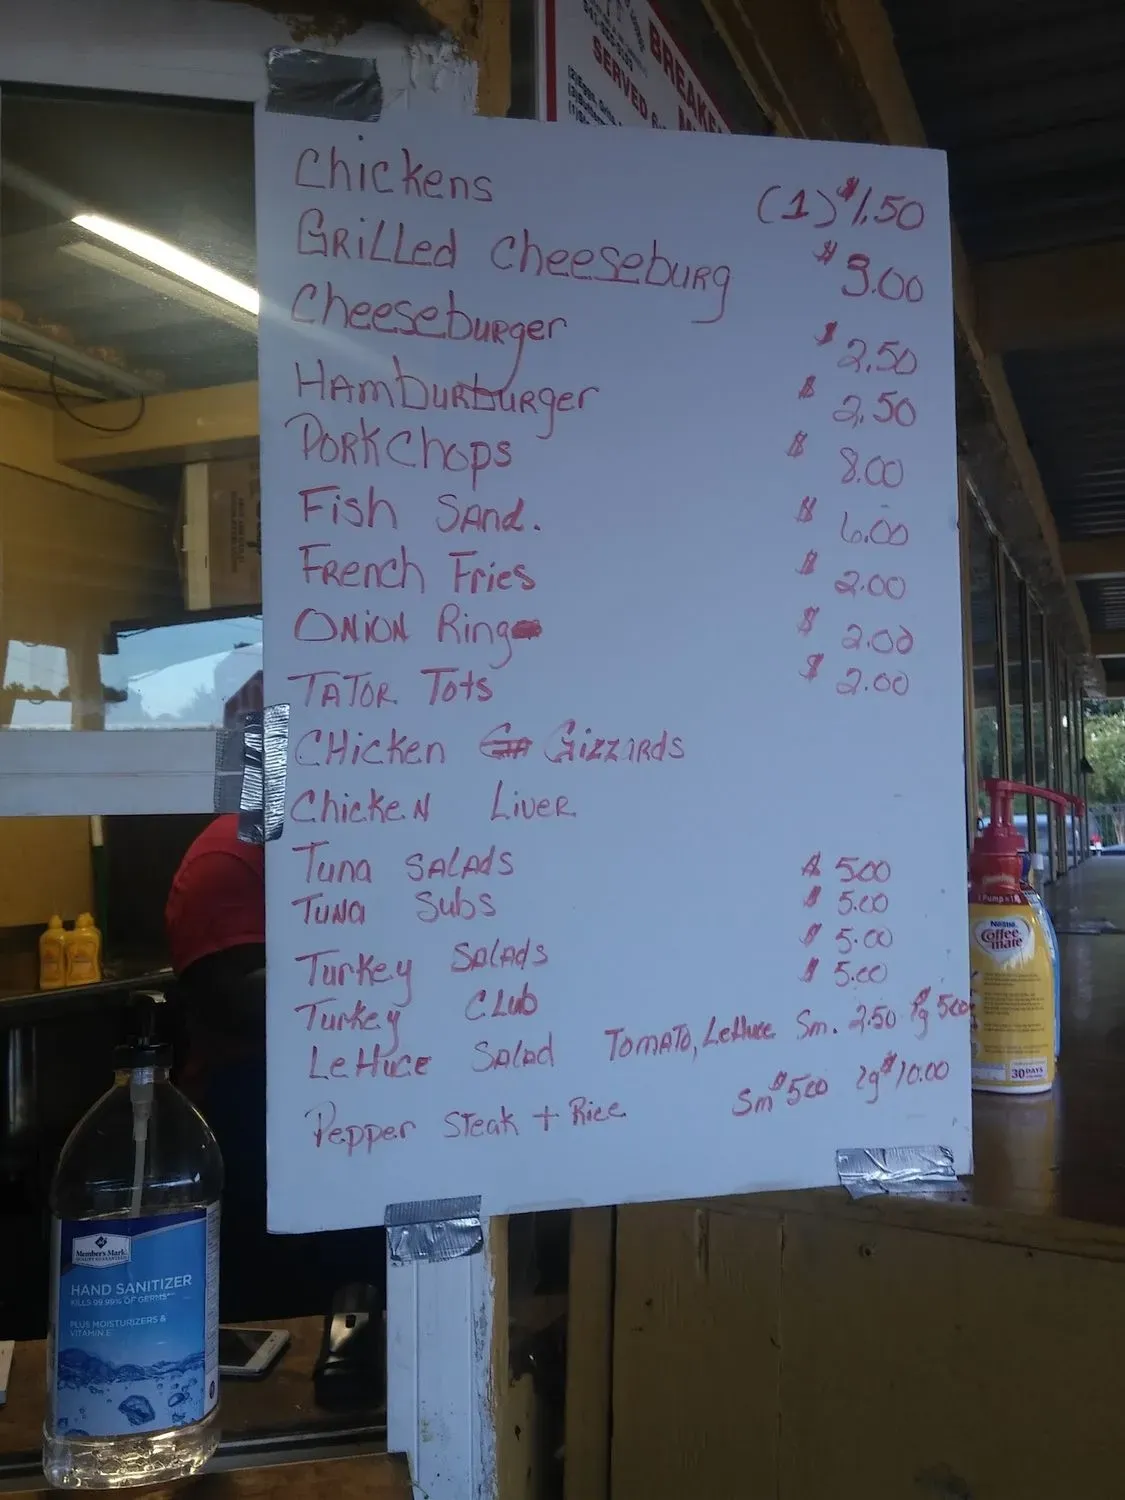 BREAKF
SERVED 6
Chickens (1) $1.50
GRiLLed Cheeseburg $3.00
Cheeseburger $2.50
HAmburburger $2.50
PORKChops $8.00
Fish SAnd. $6.00
French Fries $2.00
ONiON Ring $2.00
TATOR Tots $2.00
CHicken Gizzards
ChickeN LiveR
Tuna SALAds $5.00
TUNa Subs $5.00
Turkey SALAds $5.00
Turkey CLub $5.00
LeTTuce SALAd TOMATO, LeTTuce Sm. 2.50 lg $5.00
Pepper STeak + Rice Sm $5.00 lg $10.00
Nestle
Coffee
mate
1 Pump = 1
30 DAYS
Member's Mark
HAND SANITIZER
KILLS 99.99% OF GERMS**
PLUS MOISTURIZERS &
VITAMIN E